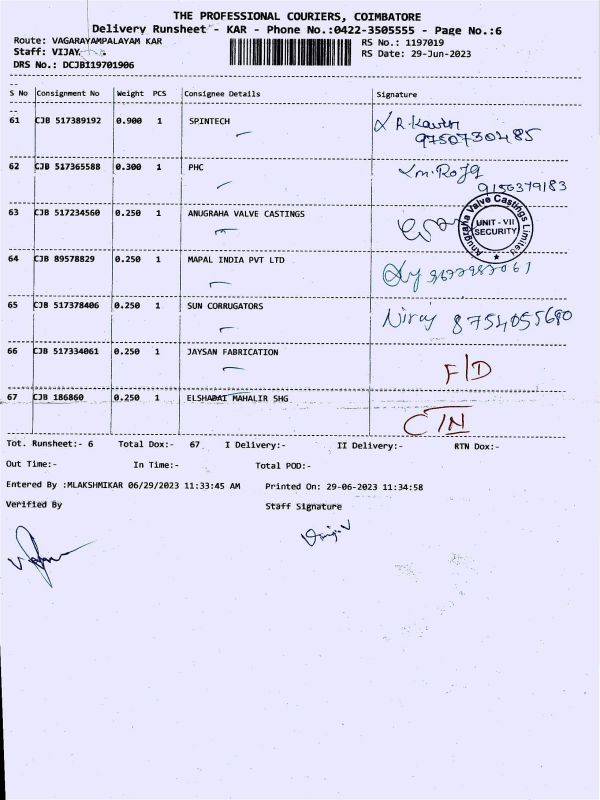 THE PROFESSIONAL COURIERS, COIMBATORE
Delivery Runsheet - KAR - Phone No.:0422-3505555 - Page No.:6
Route: VAGARAYAMPALAYAM KAR RS No.: 1197019
Staff: VIJAY. RS Date: 29-Jun-2023
DRS No.: DCJB119701906
S No Consignment No Weight PCS Consignee Details Signature
61 CJB 517389192 0.900 1 SPINTECH
9750730485
62 CJB 517365588 0.300 1 PHC
9156379183
63 CJB 517234560 0.250 1 ANUGRAHA VALVE CASTINGS
Anugraha Valve Castings Limited
UNIT - VII
SECURITY
64 CJB 89578829 0.250 1 MAPAL INDIA PVT LTD
65 CJB 517378406 0.250 1 SUN CORRUGATORS
Niraj 8754055680
66 CJB 517334061 0.250 1 JAYSAN FABRICATION
F/D
67 CJB 186860 0.250 1 ELSHADAI MAHALIR SHG
C/N
Tot. Runsheet:- 6 Total Dox:- 67 I Delivery:- II Delivery:- RTN Dox:-
Out Time:- In Time:- Total POD:-
Entered By :MLAKSHMIKAR 06/29/2023 11:33:45 AM Printed On: 29-06-2023 11:34:58
Verified By Staff Signature